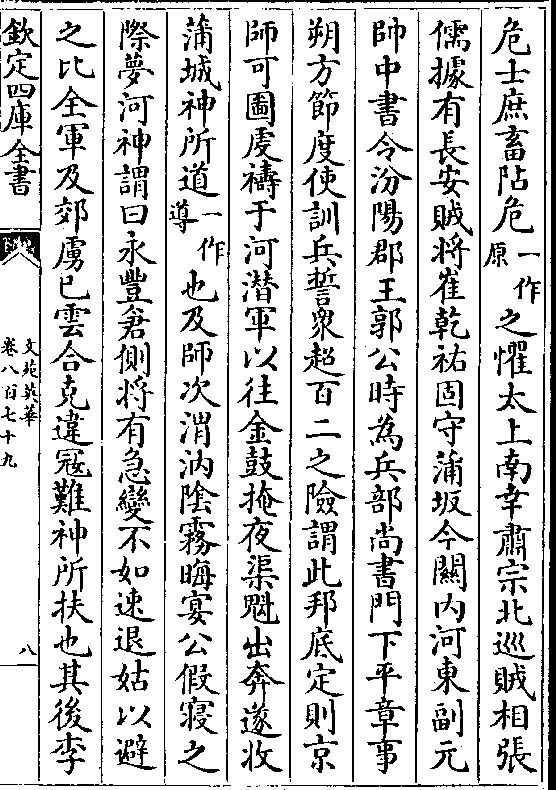 危士庶畜阽危一作原之懼太上南幸肅宗北巡賊相張
儒據有長安賊將崔乾祐固守蒲坂今關内河東副元
帥中書令汾陽郡王郭公時為兵部尚書門下平章事
朔方節度使訓兵誓衆超百二之險謂此邦底定則京
師可圖䖍禱于河潜軍以往金鼓掩夜渠魁出奔遂收
蒲城神所道一作導也及師次渭汭陰霧晦宴公假寢之
際夢河神謂曰永豐倉側將有急變不如速退姑以避
之比全軍及郊虜已雲合克違寇難神所扶也其後李
欽定四庫全書
文苑英華
卷八百七十九
八